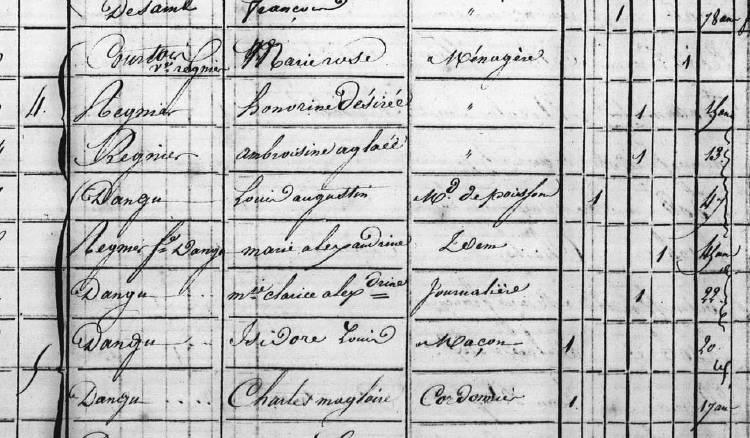 Desaint François " 1 78 an
Courtois Ve Regnier Marie rose Ménagère 1
4 Regnier honorine désirée " 1
Regnier ambroisine aglaée " 1 13
Dangu Louis augustin Md de poisson 1 47
Regnier fe Dangu marie alexandrine Idem 1
Dangu mie clarice alexdrine Journalière 1 22
Dangu Isidore Louis Maçon 1 20
5 Dangu Charles magloire Cordonnier 1 17 an